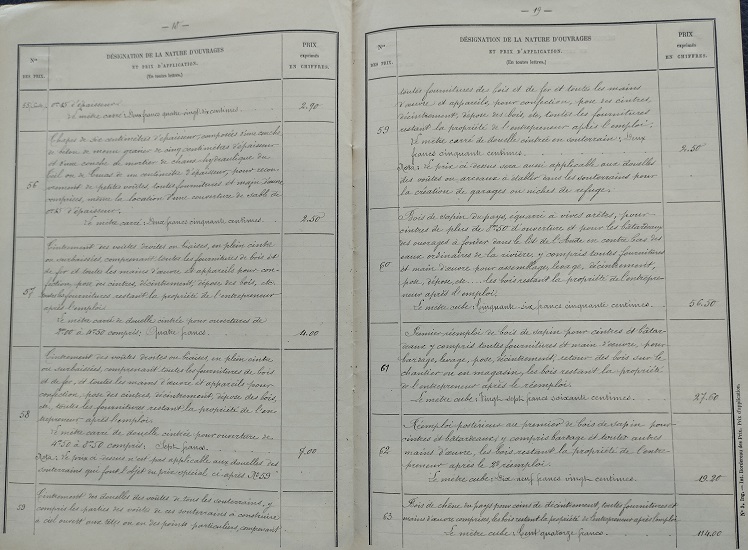 — 18 —
Nos
DES PRIX.
DÉSIGNATION DE LA NATURE D'OUVRAGES
ET PRIX D'APPLICATION.
(En toutes lettres.)
PRIX
exprimés
EN CHIFFRES.
55 (suite)
0m15 d'épaisseur.
Le mètre carré: Deux francs quatre vingt dix centimes.
2.90
56
Chapes de six centimètres d'épaisseur, composées d'une couche
de béton de menu gravier de cinq centimètres d'épaisseur
et d'une couche de mortier de chaux hydraulique du
Theil ou de Cruas de un centimètre d'épaisseur, pour recou-
vrement de petites voûtes, toutes fournitures et main d'œuvre
comprises, même la location d'une couverture de sable de
0m15 d'épaisseur.
Le mètre carré: Deux francs cinquante centimes.
2.50
57
Cintrement des voûtes droites ou biaises, en plein cintre
ou surbaissées, comprenant toutes les fournitures de bois et
de fer et toutes les mains d'œuvre et appareils pour con-
fection, pose en cintres, décintrement, dépose des bois, etc.
toutes fournitures restant la propriété de l'entrepreneur
après l'emploi.
Le mètre carré de douelle cintrée pour ouvertures de
à 4m50 compris: Quatre francs.
4.00
58
Cintrement des voûtes droites ou biaises, en plein cintre
ou surbaissées, comprenant toutes les fournitures de bois
et de fer, et toutes les mains d'œuvre et appareils pour
confection, pose des cintres, décintrement, dépose des bois,
etc. toutes fournitures restant la propriété de l'en-
trepreneur après l'emploi.
Le mètre carré de douelle cintrée pour ouverture de
4m50 à 8m50 compris: Sept francs.
7.00
Nota: Le prix ci dessus n'est pas applicable aux douelles des
souterrains qui font l'objet du prix spécial ci-après No 59
59
Cintrement des douelles des voûtes de tous les souterrains, y
compris les parties des voûtes de ces souterrains à construire
à ciel ouvert aux têtes ou en des points particuliers, comprenant
— 19 —
Nos
DES PRIX.
DÉSIGNATION DE LA NATURE D'OUVRAGES
ET PRIX D'APPLICATION.
(En toutes lettres.)
PRIX
exprimés
EN CHIFFRES.
59
toutes fournitures des bois et de fer et toutes les mains
d'œuvre et appareils, pour confection, pose des cintres
décintrement, dépose des bois, etc, toutes fournitures
restant la propriété de l'entrepreneur après l'emploi;
Le mètre carré de douelle cintrée en souterrain: Deux
francs cinquante centimes.
2.50
Nota: Le prix ci-dessus sera aussi applicable aux douelles
des voûtes ou arceaux à établir dans les souterrains pour
la création de garages ou niches de refuge.
60
Bois de sapin du pays équarri à vives arêtes, pour
cintres de plus de 8m50 d'ouverture et pour les batardeaux
des ouvrages à fonder dans le lit de l'Aude en contre bas des
eaux ordinaires de la rivière, y compris toutes fournitures
et main d'œuvre pour assemblage, levage, décintrement,
pose, dépose, etc... les bois restant la propriété de l'entrepre-
neur après l'emploi.
Le mètre cube: Cinquante six francs cinquante centimes.
56.50
61
Premier réemploi de bois de sapin pour cintres et batar-
deaux, y compris toutes fournitures et main d'œuvre, pour
bardage, levage, pose, décintrement, retour des bois sur le
chantier ou en magasin, les bois restant la propriété
de l'entrepreneur après le réemploi.
Le mètre cube: Vingt sept francs soixante centimes.
27.60
62
Réemploi postérieur au premier de bois de sapin pour
cintres et batardeaux, y compris bardage et toutes autres
mains d'œuvre, les bois restant la propriété de l'entre-
preneur après le 2e réemploi.
Le mètre cube: Dix neuf francs vingt centimes.
19.20
63
Bois de chêne du pays pour coins de décintrement, toutes fournitures et
mains d'œuvre comprises, les bois restant la propriété de l'entrepreneur après l'emploi
Le mètre cube: Cent quatorze francs.
114.00